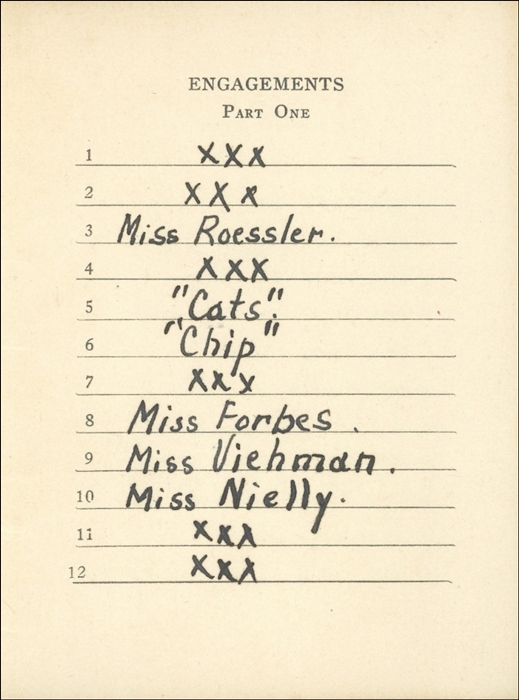 ENGAGEMENTS
PART ONE
1 XXX
2 XXX
3 Miss Roessler.
4 XXX
5 "Cats".
6 "Chip"
7 XXX
8 Miss Forbes.
9 Miss Viehman.
10 Miss Nielly.
11 XXX
12 XXX